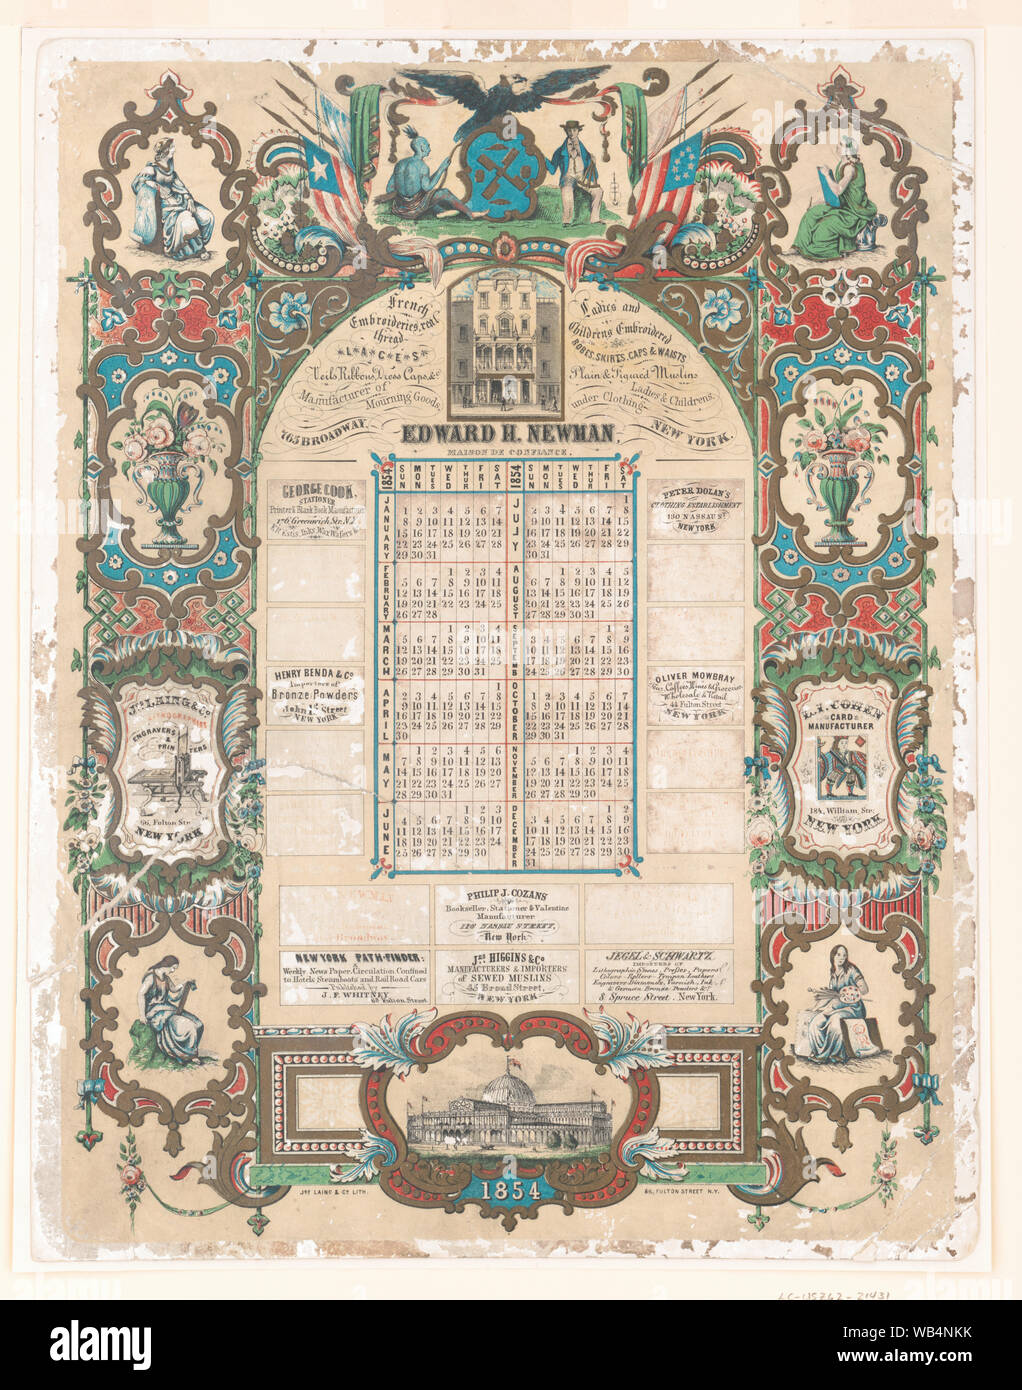 French
Embroideries, real
thread
LACES
Veils Ribbons Dress Caps, &c
Manufacturer of
Mourning Goods,
765 BROADWAY.
Ladies and
Childrens Embroidered
ROBES, SKIRTS, CAPS & WAISTS
Plain & Figured Muslins
Ladies & Childrens,
under Clothing.
NEW YORK.
EDWARD H. NEWMAN,
MAISON DE CONFIANCE.
1854 SUN MON TUES WED THUR FRI SAT 1854 SUN MON TUES WED THUR FRI SAT
JANUARY
1 2 3 4 5 6 7
8 9 10 11 12 13 14
15 16 17 18 19 20 21
22 23 24 25 26 27 28
29 30 31
FEBRUARY
1 2 3 4
5 6 7 8 9 10 11
12 13 14 15 16 17 18
19 20 21 22 23 24 25
26 27 28
MARCH
1 2 3 4
5 6 7 8 9 10 11
12 13 14 15 16 17 18
19 20 21 22 23 24 25
26 27 28 29 30 31
APRIL
1
2 3 4 5 6 7 8
9 10 11 12 13 14 15
16 17 18 19 20 21 22
23 24 25 26 27 28 29
30
MAY
1 2 3 4 5 6
7 8 9 10 11 12 13
14 15 16 17 18 19 20
21 22 23 24 25 26 27
28 29 30 31
JUNE
1 2 3
4 5 6 7 8 9 10
11 12 13 14 15 16 17
18 19 20 21 22 23 24
25 26 27 28 29 30
JULY
1
2 3 4 5 6 7 8
9 10 11 12 13 14 15
16 17 18 19 20 21 22
23 24 25 26 27 28 29
30 31
AUGUST
1 2 3 4 5
6 7 8 9 10 11 12
13 14 15 16 17 18 19
20 21 22 23 24 25 26
27 28 29 30 31
SEPTEMB
1 2
3 4 5 6 7 8 9
10 11 12 13 14 15 16
17 18 19 20 21 22 23
24 25 26 27 28 29 30
OCTOBER
1 2 3 4 5 6 7
8 9 10 11 12 13 14
15 16 17 18 19 20 21
22 23 24 25 26 27 28
29 30 31
NOVEMBER
1 2 3 4
5 6 7 8 9 10 11
12 13 14 15 16 17 18
19 20 21 22 23 24 25
26 27 28 29 30
DECEMBER
1 2
3 4 5 6 7 8 9
10 11 12 13 14 15 16
17 18 19 20 21 22 23
24 25 26 27 28 29 30
31
GEORGE COOK,
STATIONER
Printer & Blank Book Manufacturer
176 Greenwich Str. N.Y.
Inks, Wax Wafers &c
PETER DOLAN'S
CLOTHING ESTABLISHMENT
130 NASSAU St
NEW YORK
HENRY BENDA & Co
Importers of
Bronze Powders
John St Street
NEW YORK
OLIVER MOWBRAY
Teas, Coffees Wines & Groceries
Wholesale & Retail
44 Fulton Street
NEW YORK
Jas LAING & Co
LITHOGRAPHERS
ENGRAVERS
&
PRINTERS
66, Fulton Str.
NEW YORK
L. I. COHEN
CARD
MANUFACTURER
184, William, Str:
NEW YORK
Broadway
PHILIP J. COZANS
Bookseller, Stationer & Valentine
Manufacturer
120 NASSAU STREET,
New York
NEW YORK PATH-FINDER:
Weekly News Paper, Circulation Confined
to Hotels Steamboats and Rail Road Cars
Published by
J. F. WHITNEY
68 Fulton Street
Jas HIGGINS & Co
MANUFACTURERS & IMPORTERS
of SEWED MUSLINS
45 Broad Street,
NEW YORK
JEGEL & SCHWARTZ
IMPORTERS OF
Lithographic Stones, Presses, Papers
Colors
Engravers Diamonds, Varnish, Ink,
& German Bronze Powders &c
8 Spruce Street. New York.
1854
Jas LAING & Co LITH.
66, FULTON STREET N.Y.
LC-USZ62-21431
alamy
Image ID: WB4NKK
www.alamy.com